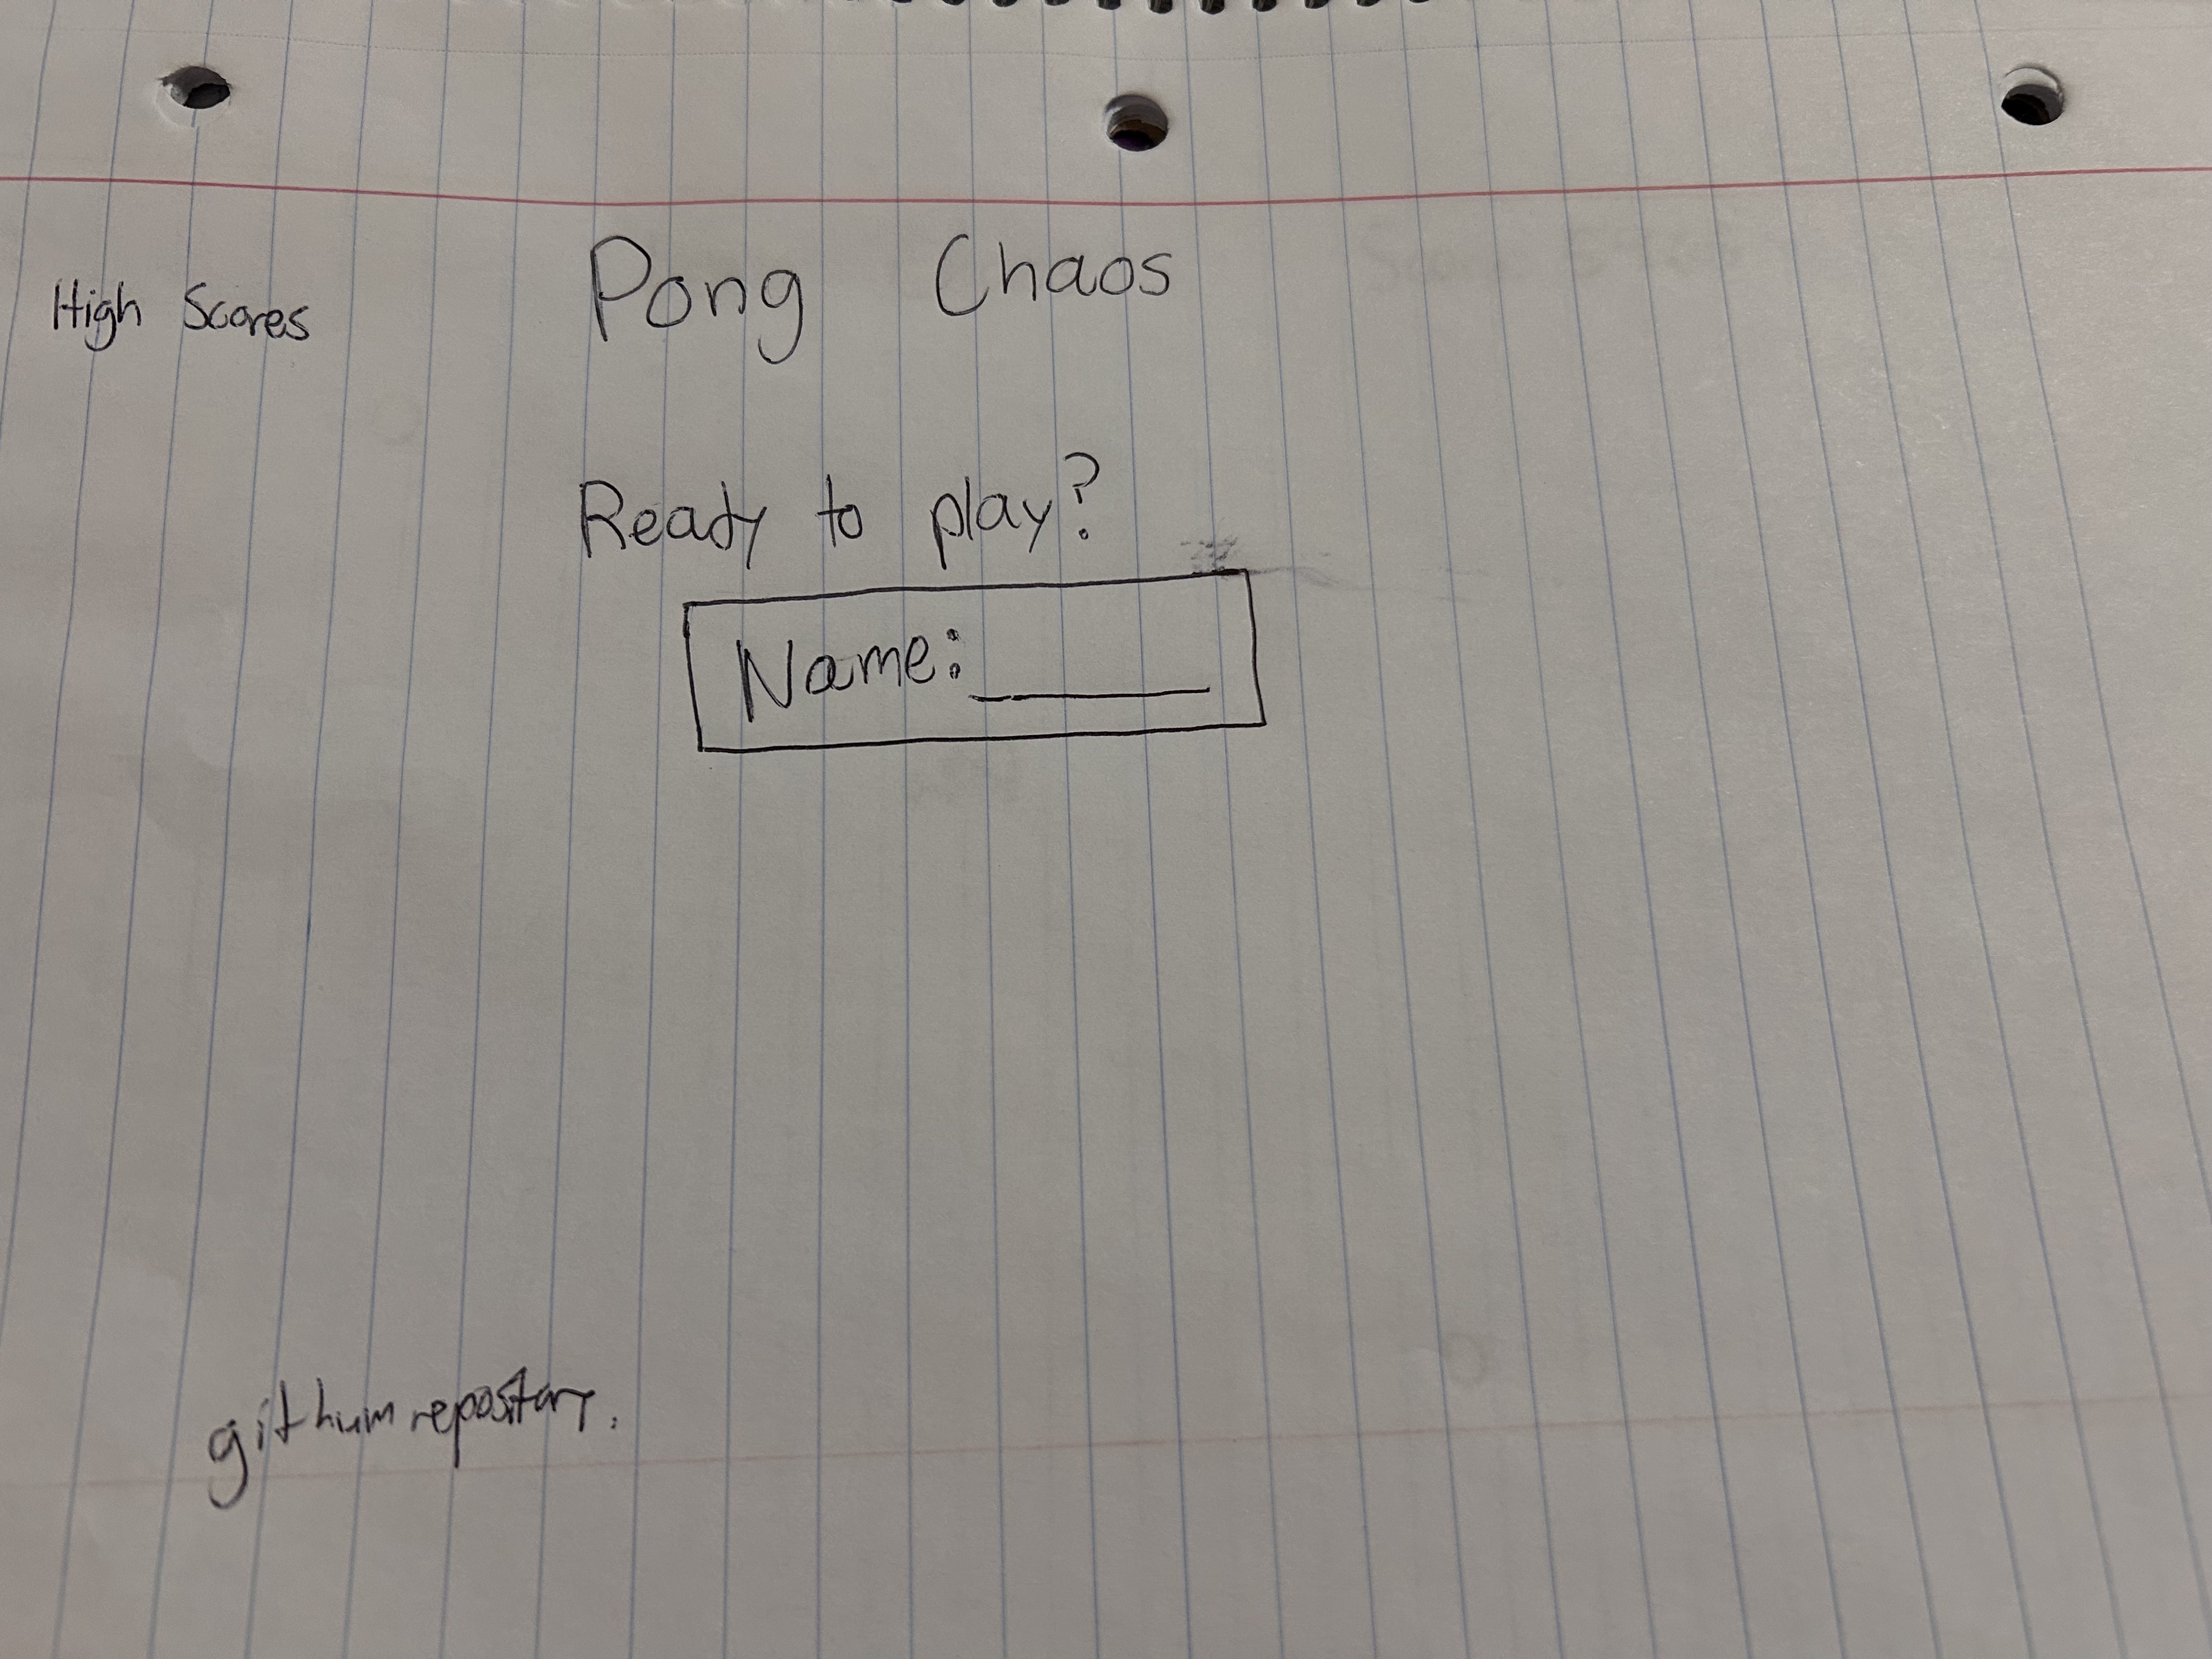 High Scores
Pong Chaos
Ready to play?
Name:
githum repository.